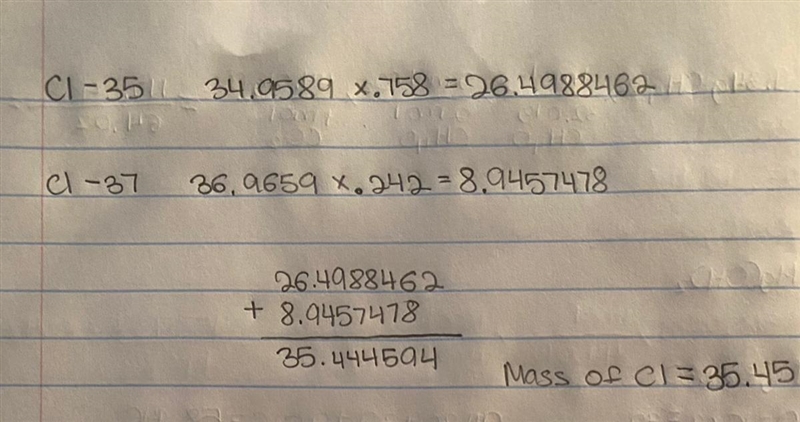 Cl-35 34.9589 x.758 = 26.4988462
Cl-37 36.9659 x.242 = 8.9457478
26.4988462
+ 8.9457478
35.444594
Mass of Cl = 35.45